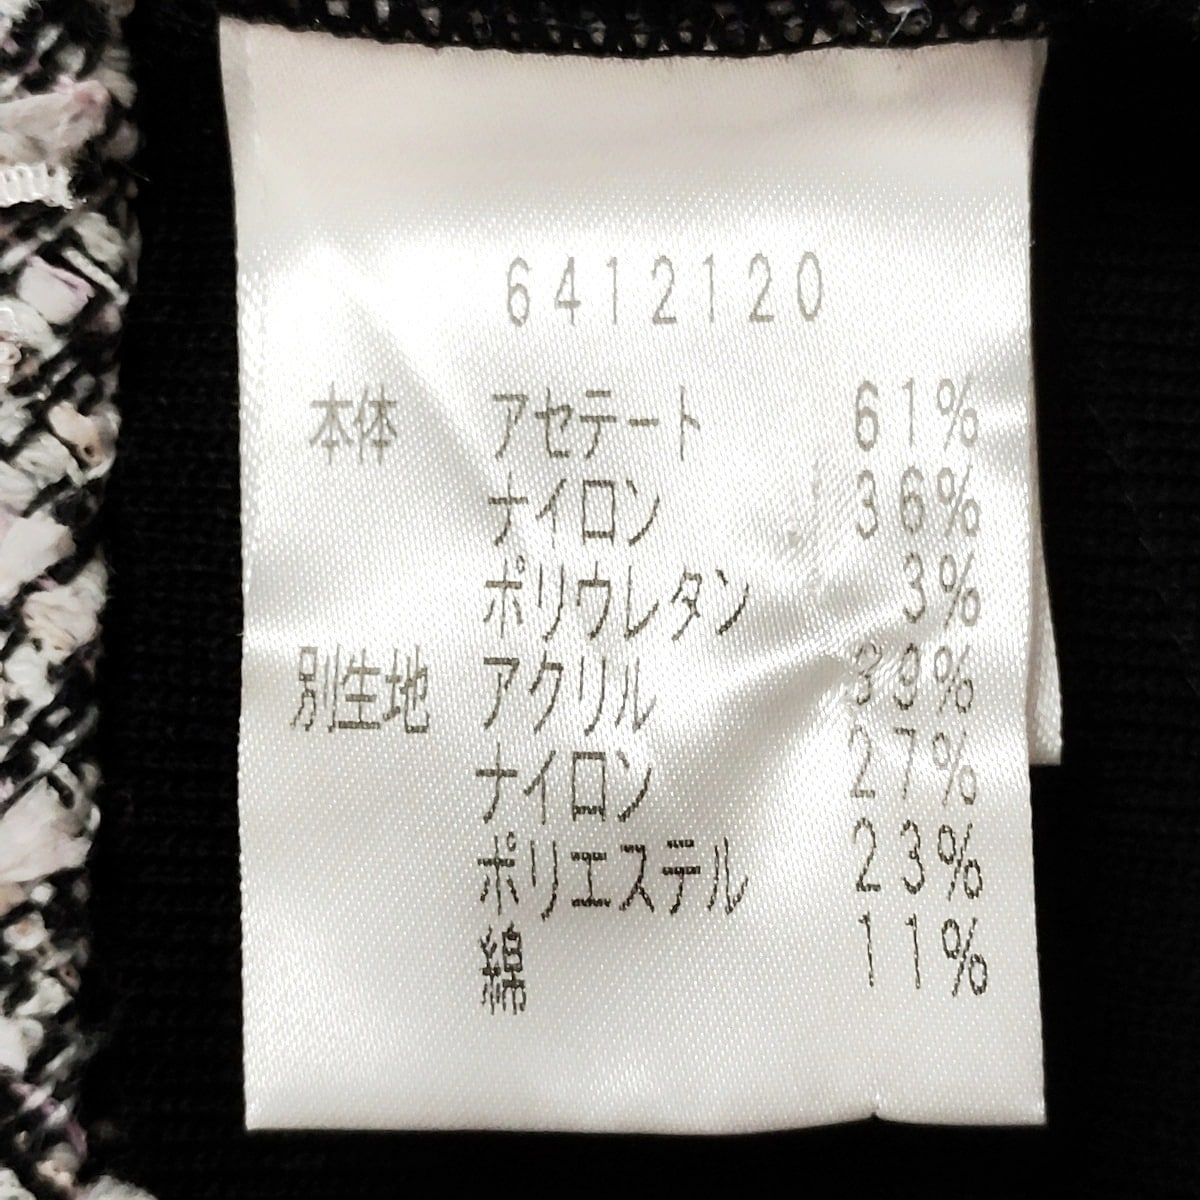 6412120
本体 アセテート 61%
ナイロン 36%
ポリウレタン 3%
別生地 アクリル 39%
ナイロン 27%
ポリエステル 23%
綿 11%